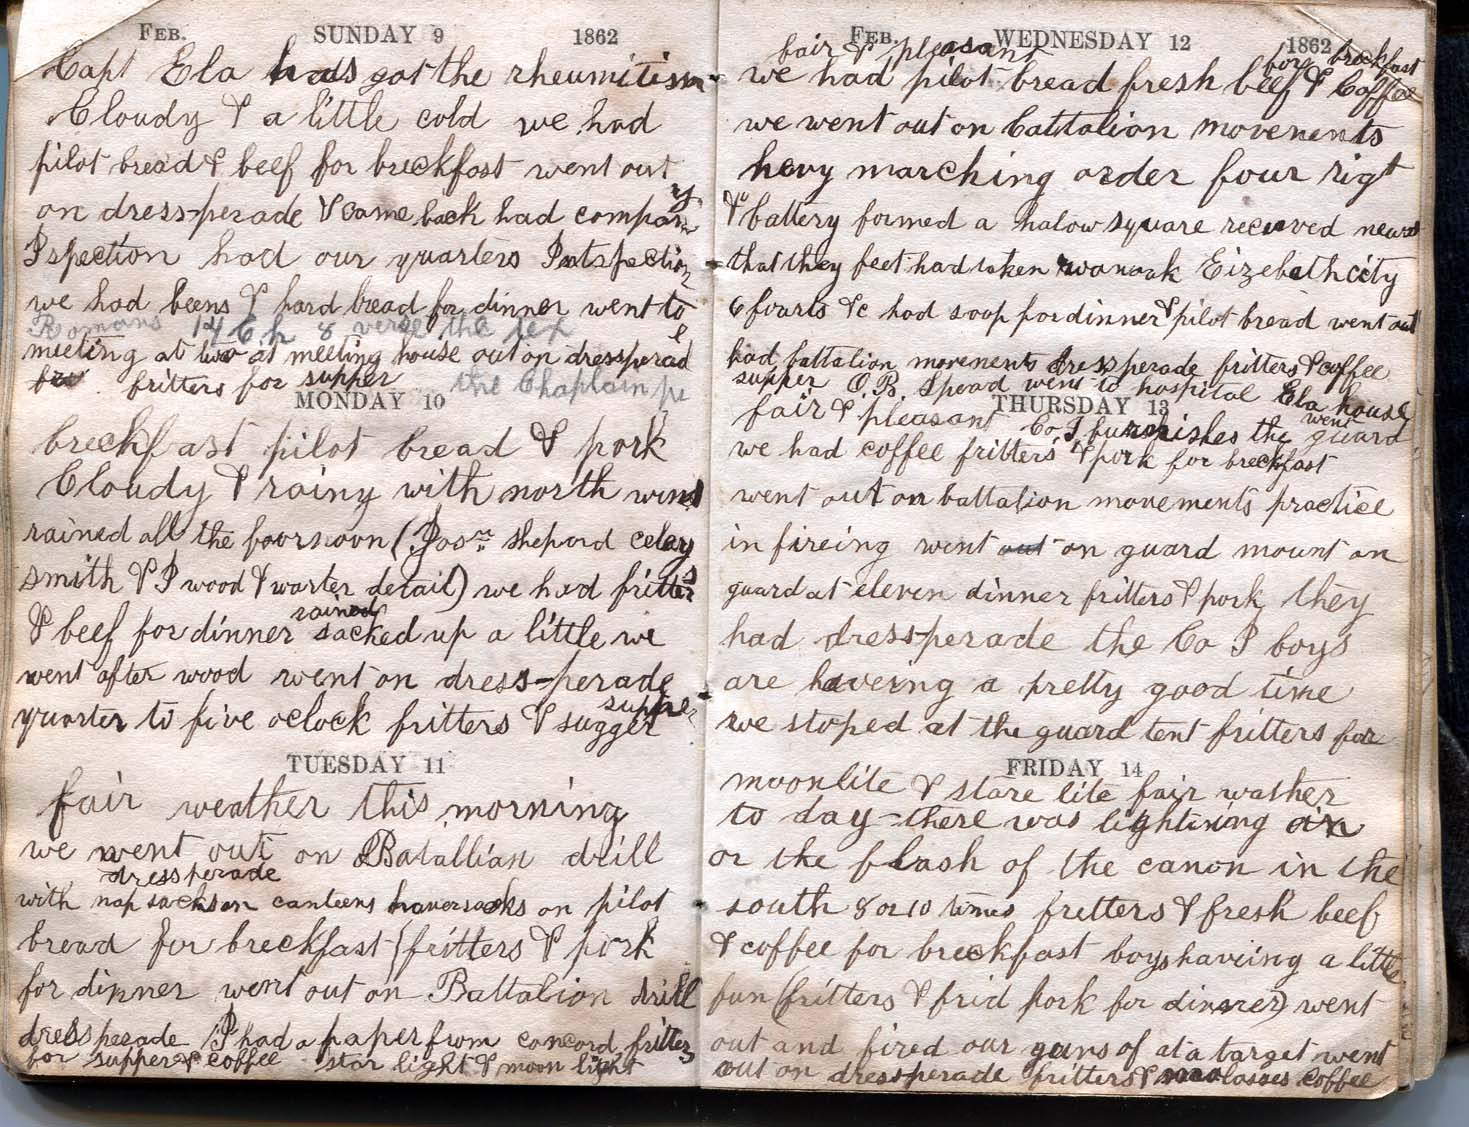 FEB. SUNDAY 9 1862
Capt Ela has got the rheumitism
Cloudy & a little cold we had
pilot bread & beef for breckfast went out
on dress-perade & came back had company
Ispection had our quarters Intspection
we had beens & hard bread for dinner went to
Romans 14 Ch 8 verse the tex
meeting at two at meeting house out on dressperade
fritters for supper the Chaplain
MONDAY 10
breckfast pilot bread & pork
Cloudy & rainy with north wind
rained all the foornoon (Jos shepord celary
smith & I wood & warter detail) we had fritters
rained
& beef for dinner sacked up a little we
went after wood went on dress-perade
supper
quarter to five oclock fritters & sugger
TUESDAY 11
fair weather this morning
we went out on Batallian drill
dressperade
with napsacks on canteens haversacks on pilot
bread for breckfast (fritters & pork
for dinner went out on Battalion drill
dressperade I had a paper from concord fritters
for supper & coffee star light & moon light
FEB. WEDNESDAY 12 1862
fair & pleasant for breckfast
we had pilot bread fresh beef & Coffee
we went out on Cattalion movenents
hevy marching order four rigt
& battery formed a halow square recieved news
that they feet had taken wanoak Eizebethcity
6 fourts &c had soop for dinner & pilot bread went out
had battalion movements dressperade fritters & coffee
supper O.B. Spead went to hospital Ela house
THURSDAY 13
fair & pleasant Co I furnishes the guard
went
we had coffee fritters & pork for breckfast
went out on battalion movements practice
in fireing went out on guard mount on
guard at eleven dinner fritters & pork they
had dress-perade the Co I boys
are haveing a pretty good time
we stoped at the guard tent fritters for
FRIDAY 14
moonlite & stare lite fair wather
to day - there was lightining in
or the flash of the canon in the
south 8 or 10 times fritters & fresh beef
& coffee for breckfast boys haveing a little
fun (fritters & frid pork for dinner) went
out and fired our guns of at a target went
out on dressperade fritters & molasses coffee